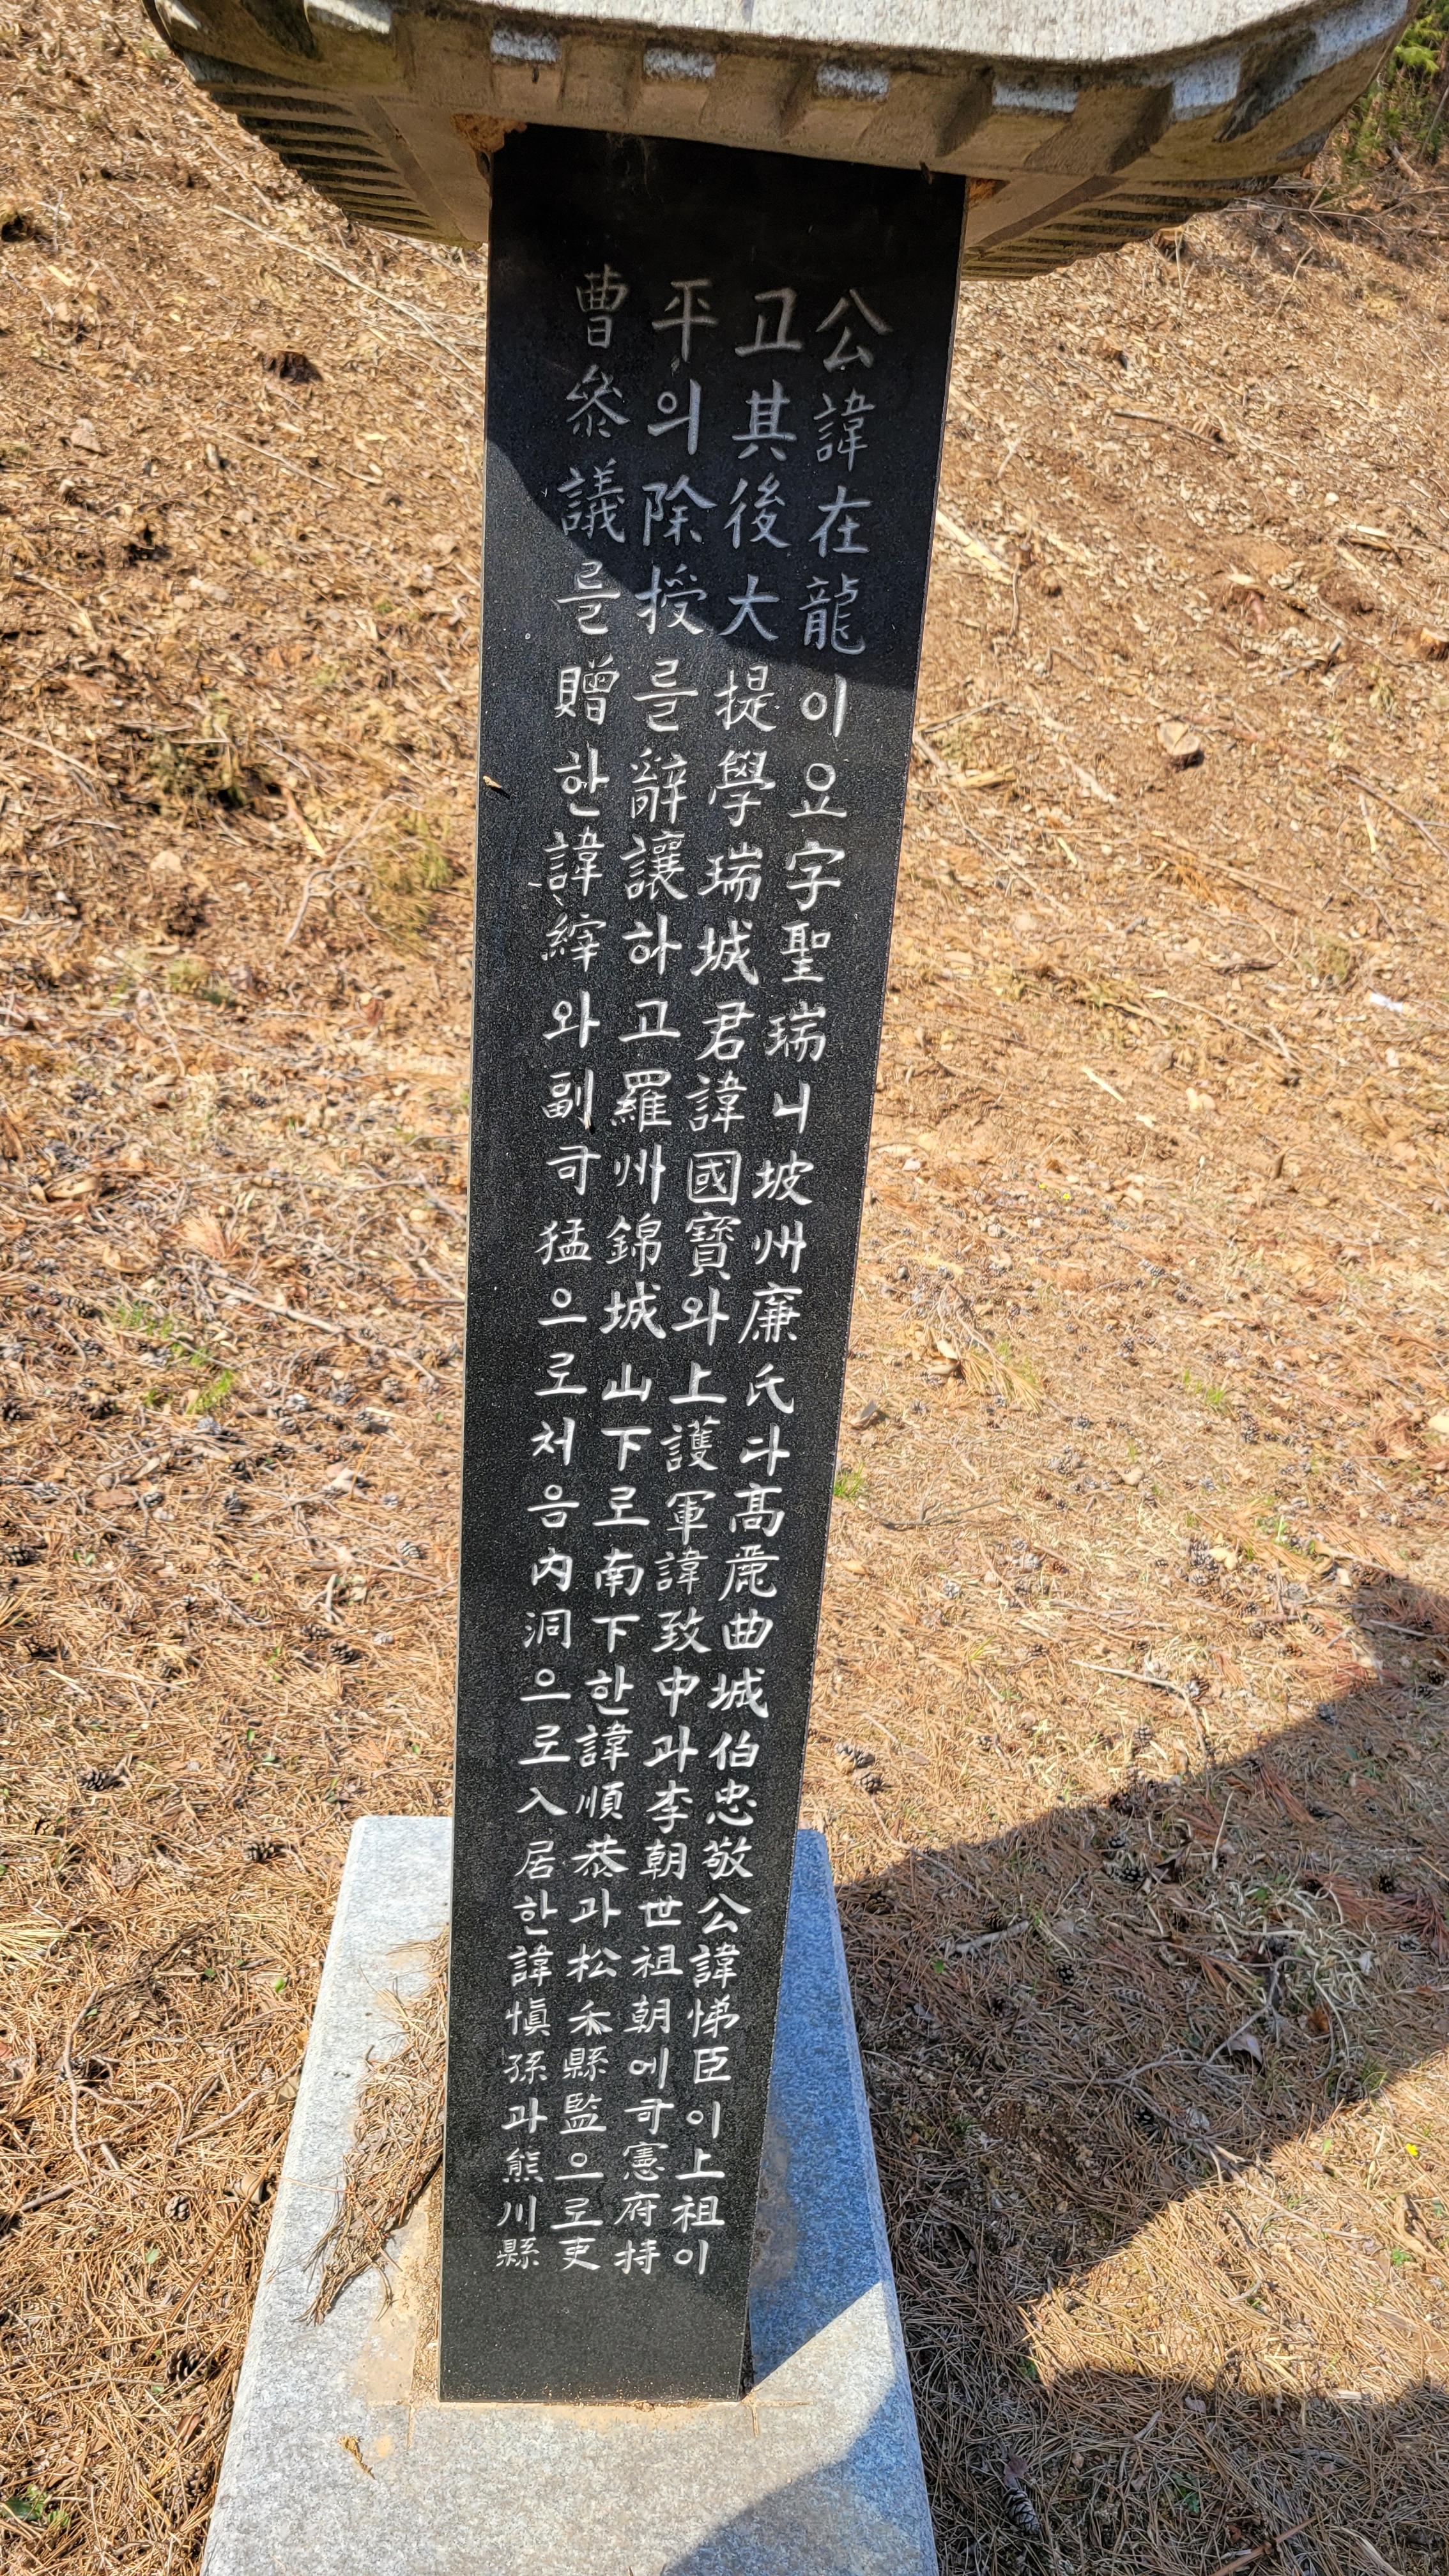 公諱在龍이요字聖瑞니坡州廉氏다高麗曲城伯忠敬公諱悌臣이上祖이
고其後大提學瑞城君諱國寶와上護軍諱致中과李朝世祖朝에司憲府持
平의除授를辭讓하고羅州錦城山下로南下한諱順恭과松禾縣監으로吏
曹參議를贈한諱縡와副司猛으로처음內洞으로入居한諱愼孫과熊川縣